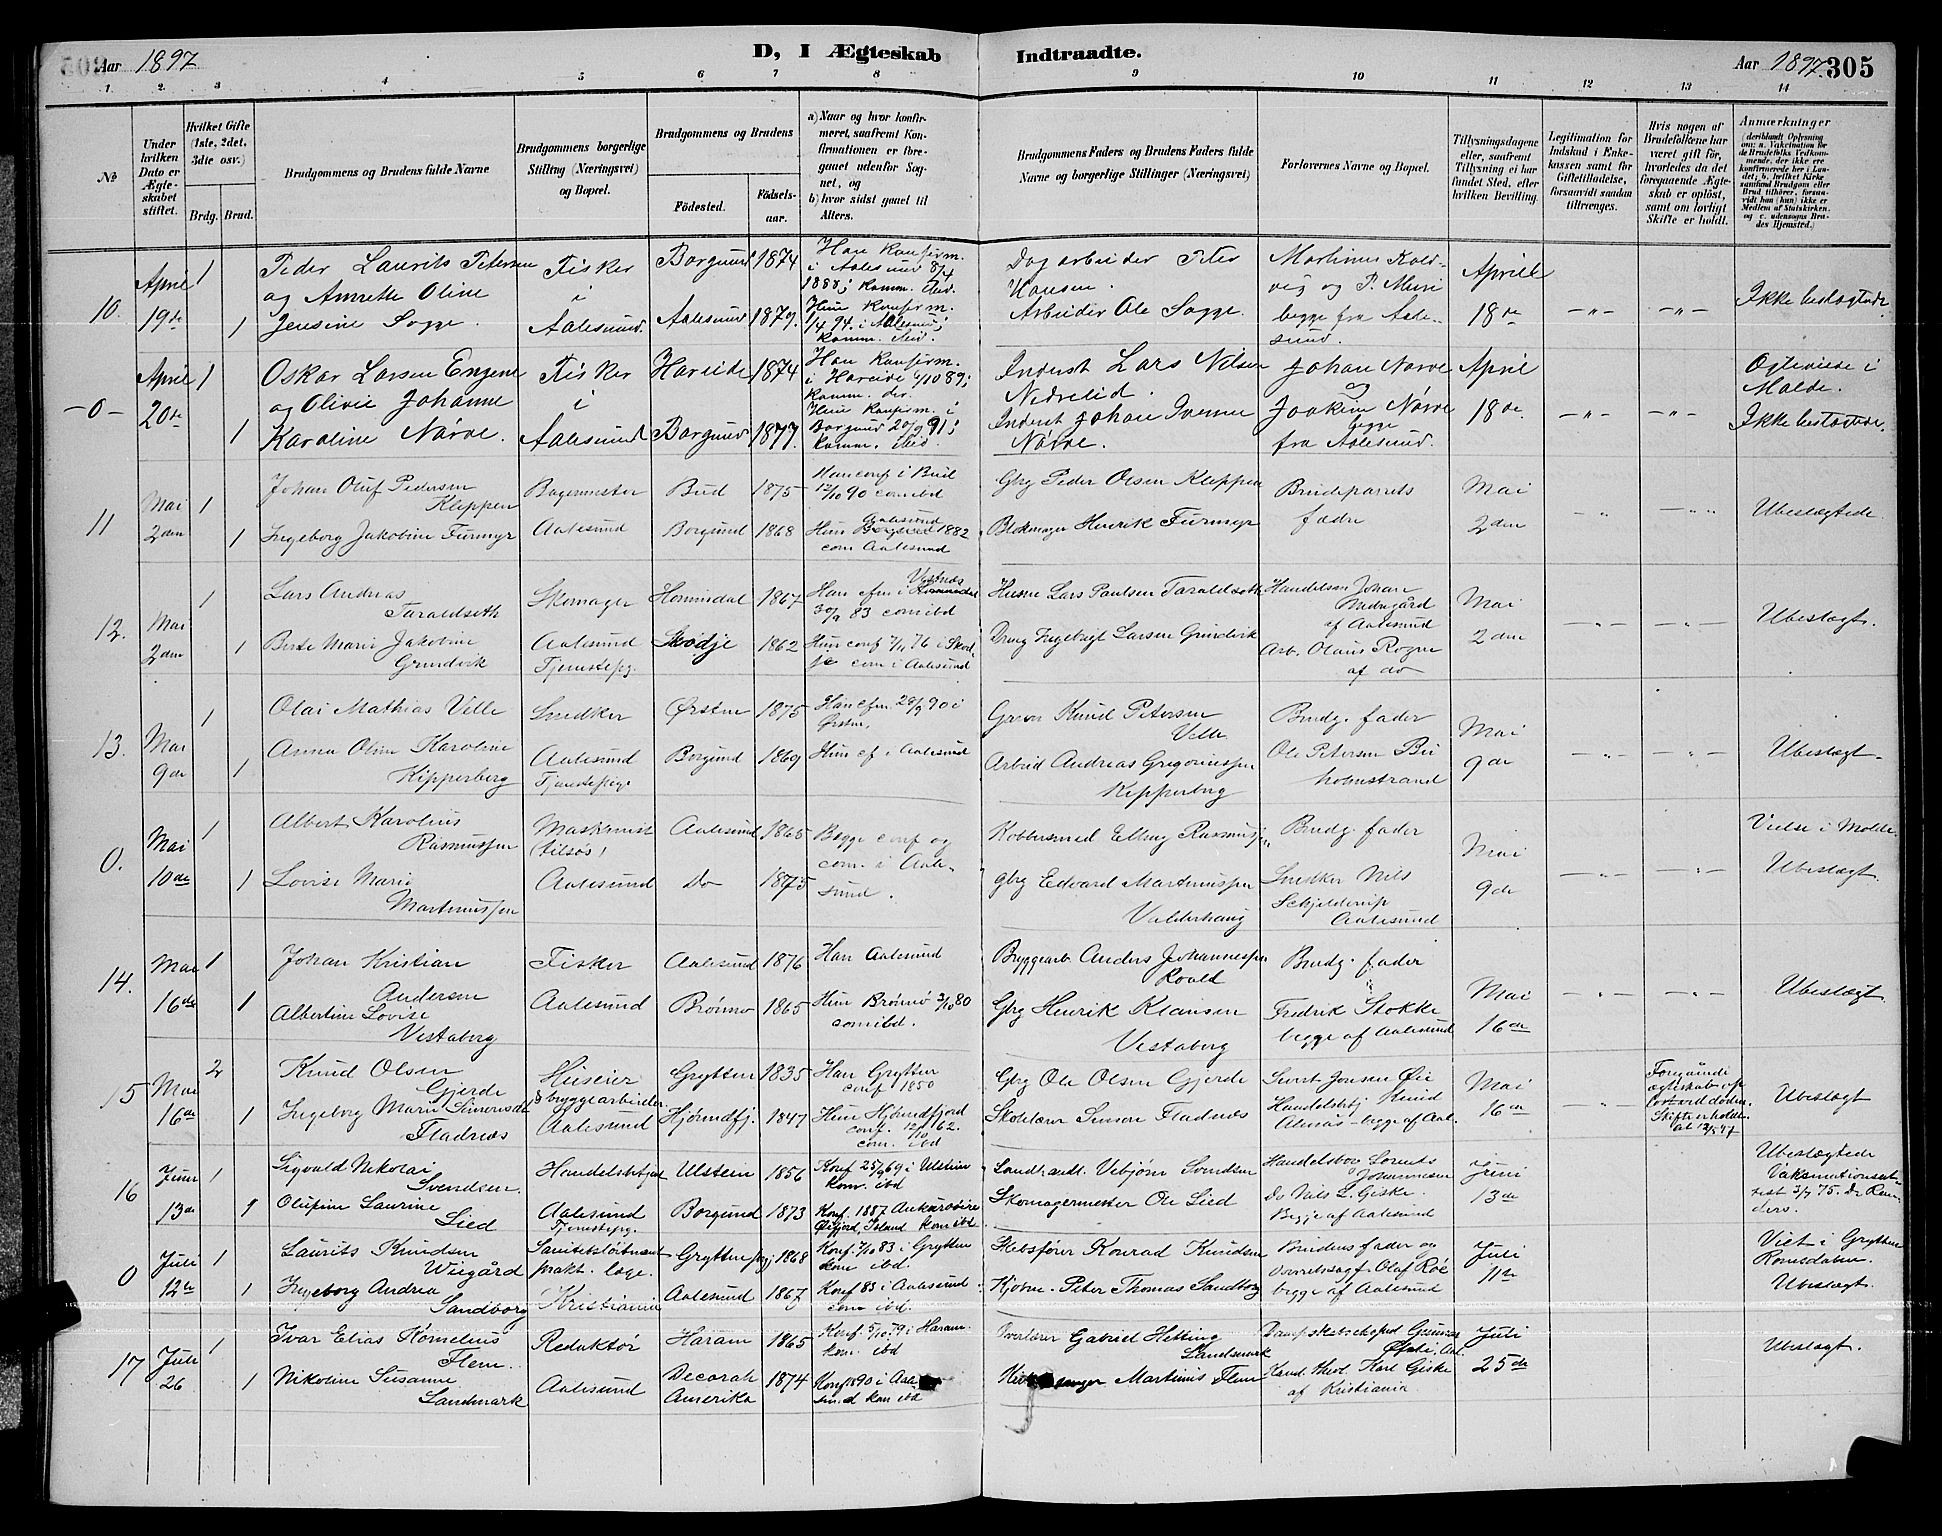 Aar 1897
D, I Ægteskab Indtraadte.
Aar 1897.
305
1. 2. 3 4 5 6 7 8 9 10 11 12 13 14
№
Under hvilken Dato er Ægteskabet stiftet.
Hvilket Gifte (1ste, 2det, 3die osv.)
Brdg. Brud.
Brudgommens og Brudens fulde Navne
Brudgommens borgerlige Stilling (Næringsvei) og Bopæl.
Brudgommens og Brudens
Födested. Födselsaar.
a) Naar og hvor konfirmeret, saafremt Konfirmationen er foregaaet udenfor Sognet, og
b) hvor sidst gaaet til Alters.
Brudgommens Faders og Brudens Faders fulde Navne og borgerlige Stillinger (Næringsvei)
Forlovernes Navne og Bopæl.
Tillysningsdagene eller, saafremt Tillysning ei har fundet Sted, efter hvilken Bevilling.
Legitimation for Indskud i Enkekassen samt for Giftetilladelse, forsaavidt saadan tiltrænges.
Hvis nogen af Brudefolkene har været gift för, hvorledes da det foregaaende Ægteskab er oplöst, samt om lovligt Skifte er holdt.
Anmærkninger (deriblandt Oplysning om: a. Vakcination for de Brudefolks Vedkommende, der ikke ere konfirmerede her i Landet; b. hvilket Kirkesamfund Brudgom eller Brud tilhörer, forsaavidt han (hun) ikke er Medlem af Statskirken, og c. udensogns Brudes Hjemsted.)
10. April 19de 1 1
Peder Laurits Petersen
og Annette Oline
Jensine Sogge.
Fisker
i
Aalesund.
Borgund 1874
Aalesund 1879.
Han konfirm.
i Aalesund 8/4
1888; komm. ibid.
Hun konfirm.
1/4 94. i Aalesund;
komm. ibid.
Dagarbeider Peter
Hansen.
Arbeider Ole Sogge.
Martinus Kold-
vig og P. Muri
begge fra Aale-
sund.
April
18de
Ikke beslægtede.
-0- April 20de 1 1
Oskar Larsen Engene
og Olivie Johanne
Karoline Nørve.
Fisker
i
Aalesund
Hareide 1874
Borgund 1877.
Han konfirm.
i Hareide 6/10 89;
komm. der.
Hun konfirm. i
Borgund 20/9 91;
komm. ibid.
Inderst Lars Nilsen
Nedrelid.
Inderst Johan Iversen
Nørve.
Johan Nørve
og
Joakim Nørve
begge
fra Aalesund.
April
18de
Ogteviede i
Molde.
Ikke beslægtede.
11 Mai 2den 1 1
Johan Oluf Pedersen
Kleppen
Ingeborg Jakobine Furmyr
Bagermester
Aalesund
Bud 1875
Borgund 1868
Han conf i Bud
12/10 90 com ibd
Aalesund
Hun 1882
com Aalesund
Gbrg Peder Olsen Kleppen
Blokmager Henrik Furmyr
Brudeparrets
fædre
Mai
2den
Ubeslægtede
12. Mai 2den 1 1
Lars Andreas
Taraldseth
Birte Marie Jakobine
Grundvik
Skomager
Aalesund
Tjenestepg.
Hornindal 1867
Skodje 1862
Vestnæs
Han cfm i
30/9 83 com ibd
Hun conf 7/11 76 i Skod-
je com i Aalesund
Husm Lars Paulsen Taraldseth
Ingebrigt Larsen Grundvik
Handelsm Johan
af Aalesund
Arb. Olaus Rogne
af do
Mai
2den
Ubeslægt.
13. Mai 9de 1 1
Olai Mathias Velle
Anna Oline Karoline
Kipperberg
Snedker
Aalesund
Tjenestepige
Ørsten 1875
Borgund 1869
Han cfm. 28/9 90 i
Ørsten.
Hun cf i Aalesund
Knud Petersen
Velle
Arbeid Andreas Gregoriussen
Kipperberg
Brudg. fader
Ole Petersen Bu
holmstrand
Mai
9de
Ubeslægt.
0. Mai 10de 1 1
Albert Karolius
Rasmussen
Lovise Marie
Martinussen
Maskinist
(tilsøs)
Aalesund
Aalesund 1865
Do 1875
Begge conf og
com. i Aale-
sund.
Kobbersmed Elling Rasmussen
gbrg Edvard Martinussen
Valderhaug
Brudg. fader
Snedker Nils
Schjelderup
Aalesund
Mai
9de
Vielse i Molde.
Ubeslægt.
14. Mai 16de 1 1
Johan Kristian
Andersen
Albertine Lovise
Vestaberg
Fisker
Aalesund
Aalesund 1876
Brønnø 1865
Han Aalesund
Hun Brønnø 3/10 80
com ibd.
Bryggearb Anders Johannessen
Roald
Gbrg Henrik Klausen
Vestaberg
Brudg. fader
Fredrik Stokke
begge af Aalesund
Mai
16de
Ubeslægt.
15 Mai 16de 2 1
Knud Olsen
Gjerde
Ingeborg Marie Simonsd
Fladnæs
Huseier
& bryggearbeider
Aalesund
Grytten 1835
Hjørundfj. 1847
Han Grytten
conf 1850
Hun Hjørundfjord
conf. 12/10 62.
com. ibd
Gbrg Ole Olsen Gjerde
Skolelærer Simon Fladnæs
Sivert Jonsen Øie
Handelsbetj Knud
Alnæs - begge af Aal.
Mai
16de
Foregående
ægteskab opl
ved døden.
Skifte er holdt
Ubeslægt
16 Juni 13de 1 1
Sigvald Nikolai
Svendsen.
Olufine Laurine
Lied
Handelsbetjent
Aalesund
Tjenestepg.
Ulstein 1856
Borgund 1873
Konf 25/9 69 i Ulstein
kom. ibd
Konf. 1887
Øefjord, Island kom ibd
Landhandl. Vebjørn Svendsen
Skomagermester Ole Lied
Handelsbor Lorents
Johannesen
Do Nils L. Giske.
Begge af Aalesund
Juni
13de
Ubeslægtede
Vaksinationsat-
test 3/7 75. Dr
0 Juli 12te 1 1
Laurits Knudsen
Wiigård
Ingeborg Andrea
Sandborg
Sanitetsløitnant
prakt. læge.
Kristiania
Grytten 1868
Aalesund 1867
Konf. 7/10 83 i Grytten
kom ibd.
Konf 83 i Aalesund
kom ibd.
Skibsfører Konrad Knudsen
Kjøbm. Peter Thomas Sandborg
Brudens fader og
Overretssagf. Olaf Roe
begge af Aalesund
Juli
11te
Viet i Grytten
Romsdalen.
Ubeslægt.
17 Juli 26 1 1
Ivar Elias Kornelius
Flem.
Nikoline Susanne
Landmark
Redaktør
Aalesund
Haram 1865
Decorah
Amerika 1874
Konf. 5/10 79 i Haram
kom. ibd
Konf 1890 i Aale
sund kom ibd
Overlærer Gabriel Hetting
Landmark
Martinus Flem
Dampskibsexped Gunnar
Aal.
Kand. theol. Karl Giske
af Kristiania
Juli
25de
Ubeslægt.